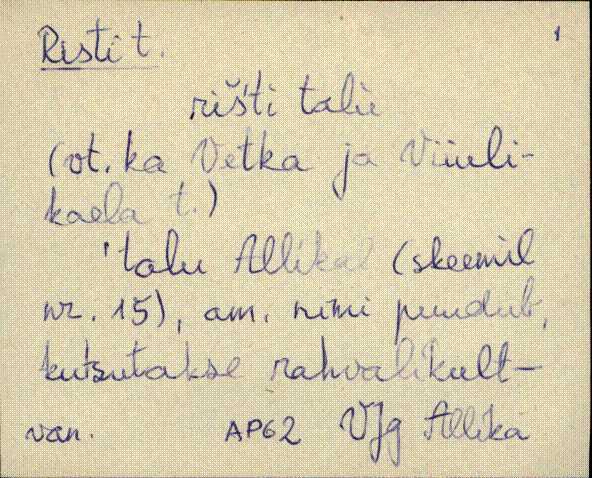 Risti t.
1
rišti talu
(vt. ka Vetka ja Viiuli-
kaela t.)
'talu Allikal (skeemil
nr. 15), am. nimi puudub,
kutsutakse rahvalikult –
van. AP62 VJg Allika